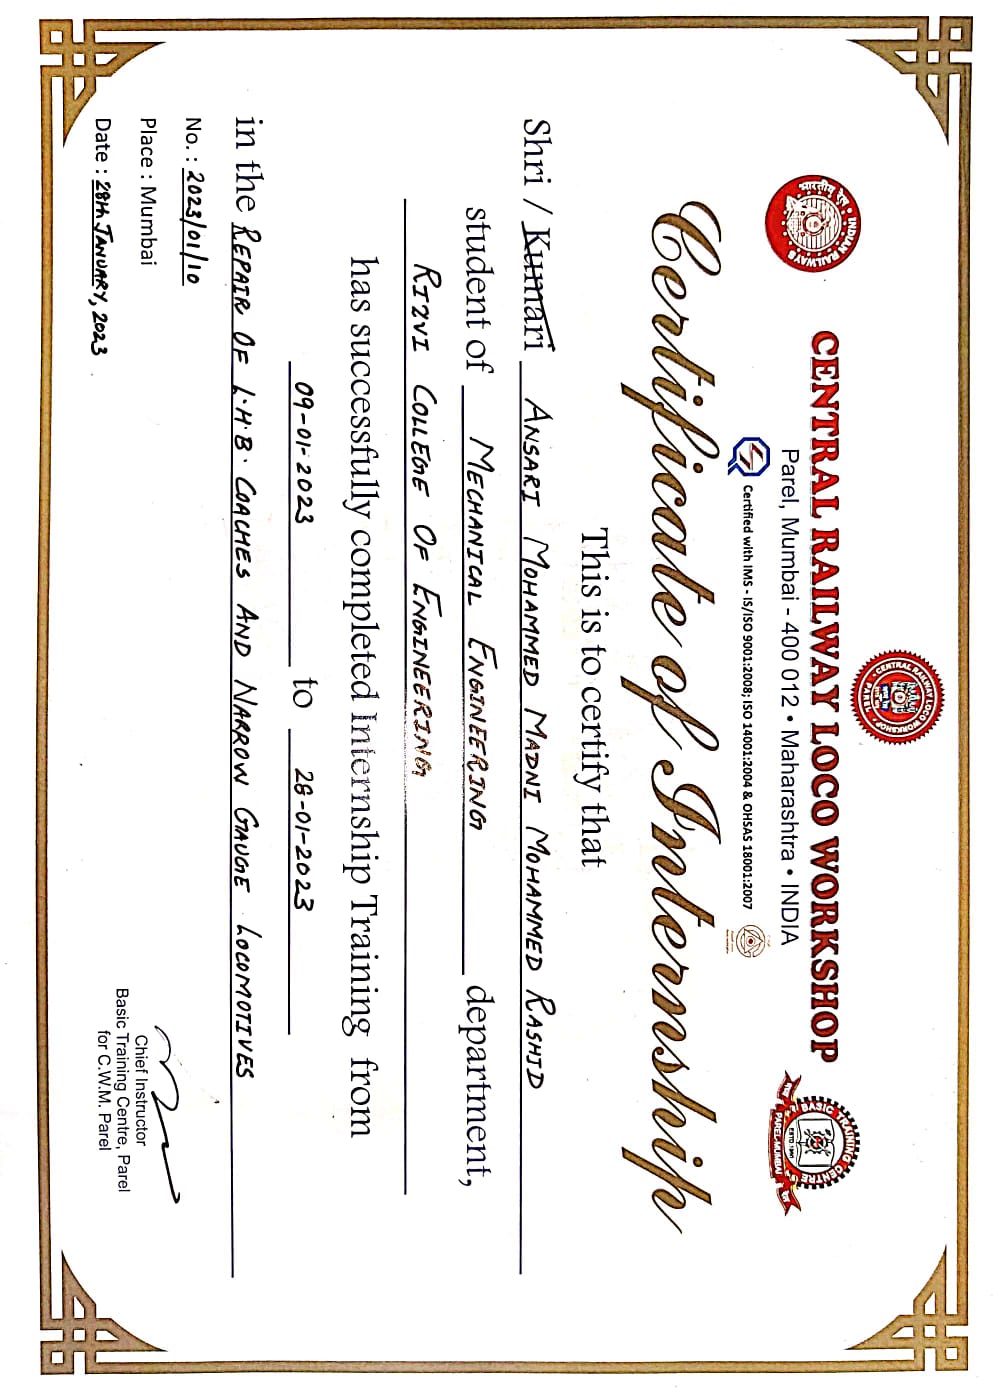 CENTRAL RAILWAY LOCO WORKSHOP PAREL
भारतीय रेल INDIAN RAILWAYS
CENTRAL RAILWAY LOCO WORKSHOP
BASIC TRAINING CENTRE
ESTD 1960
PAREL-MUMBAI
Parel, Mumbai - 400 012 • Maharashtra • INDIA
Certified with IMS - IS/ISO 9001:2008; ISO 14001:2004 & OHSAS 18001:2007
Certificate of Internship
This is to certify that
Shri / Kumari ANSARI MOHAMMED MADNI MOHAMMED RASHID
student of MECHANICAL ENGINEERING department,
RIZVI COLLEGE OF ENGINEERING
has successfully completed Internship Training from
09-01-2023 to 28-01-2023
in the REPAIR OF L.H.B. COACHES AND NARROW GAUGE LOCOMOTIVES
No. : 2023/01/10
Place : Mumbai
Date : 28th JANUARY, 2023
Chief Instructor
Basic Training Centre, Parel
for C.W.M. Parel